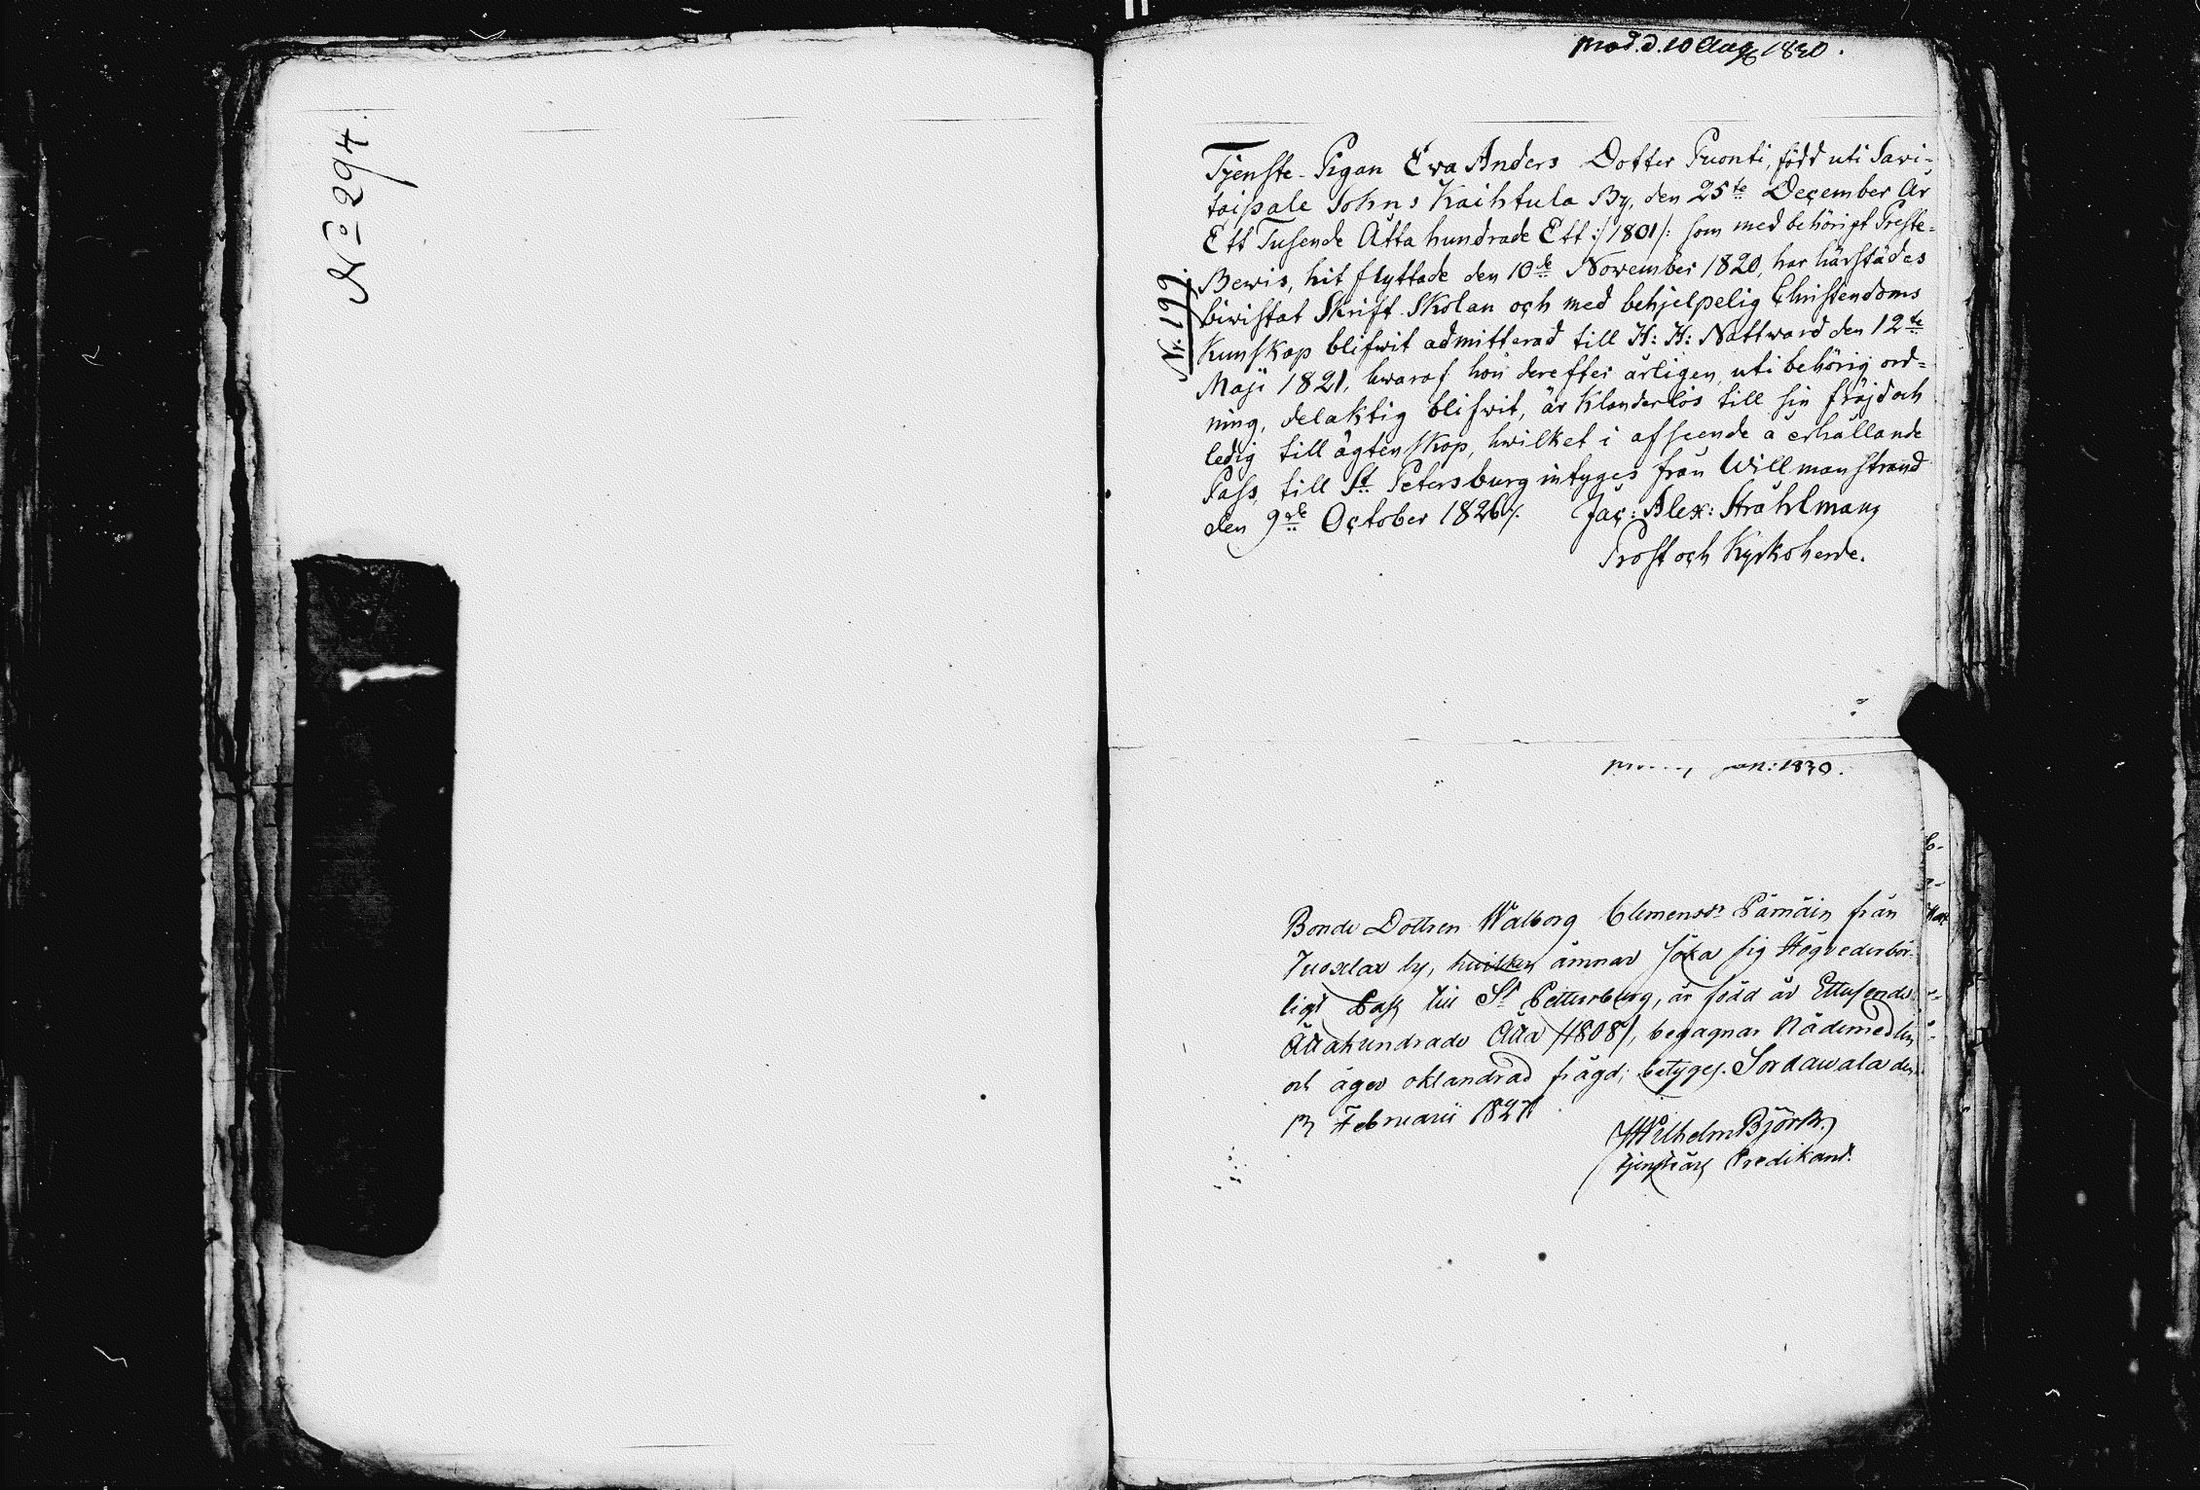 No 294.
prod. d. 10 Aug 1830.
Nr. 199.
Tjenste-Pigan Ewa Anders Dotter Puonti, född uti Savi-
taipale Sokns Kaihtula By, den 25te December År
Ett Tusende Åtta hundrade Ett :/1801/: som med behörigt Preste-
Bewis, hit flyttade den 10de November 1820, har härstädes
biwistat Skrift-Skolan och med behjelpelig Christendoms
Kunskap blifwit admitterad till H: H: Nattward den 12te
Maji 1821, hwaraf hon derefter årligen, uti behörig ord=
ning, delaktig blifwit, är Klanderlös till sin fräjd och
ledig till ägtenskap, hwilket i afseende å erhållande
Pass till St Petersburg intyges från Willmanstrand
den 9de October 1826
Jac: Alex: Stråhlman
Prost och Kyrkoherde.
jan: 1830.
Bonde Dottren Walborg Clemensdr Pämäin från
Tuoxlax by, hwilken ämnar söka sig Högvederbör-
ligt Pass till St Pettersburg, är född år Ettusende
Åttahundrade Åtta /1808/, begagnar Nådemedlen
och äger oklandrad frägd; betyges. Sordawala den
Februarii 1827
Wilhelm Björk.
Predikant.